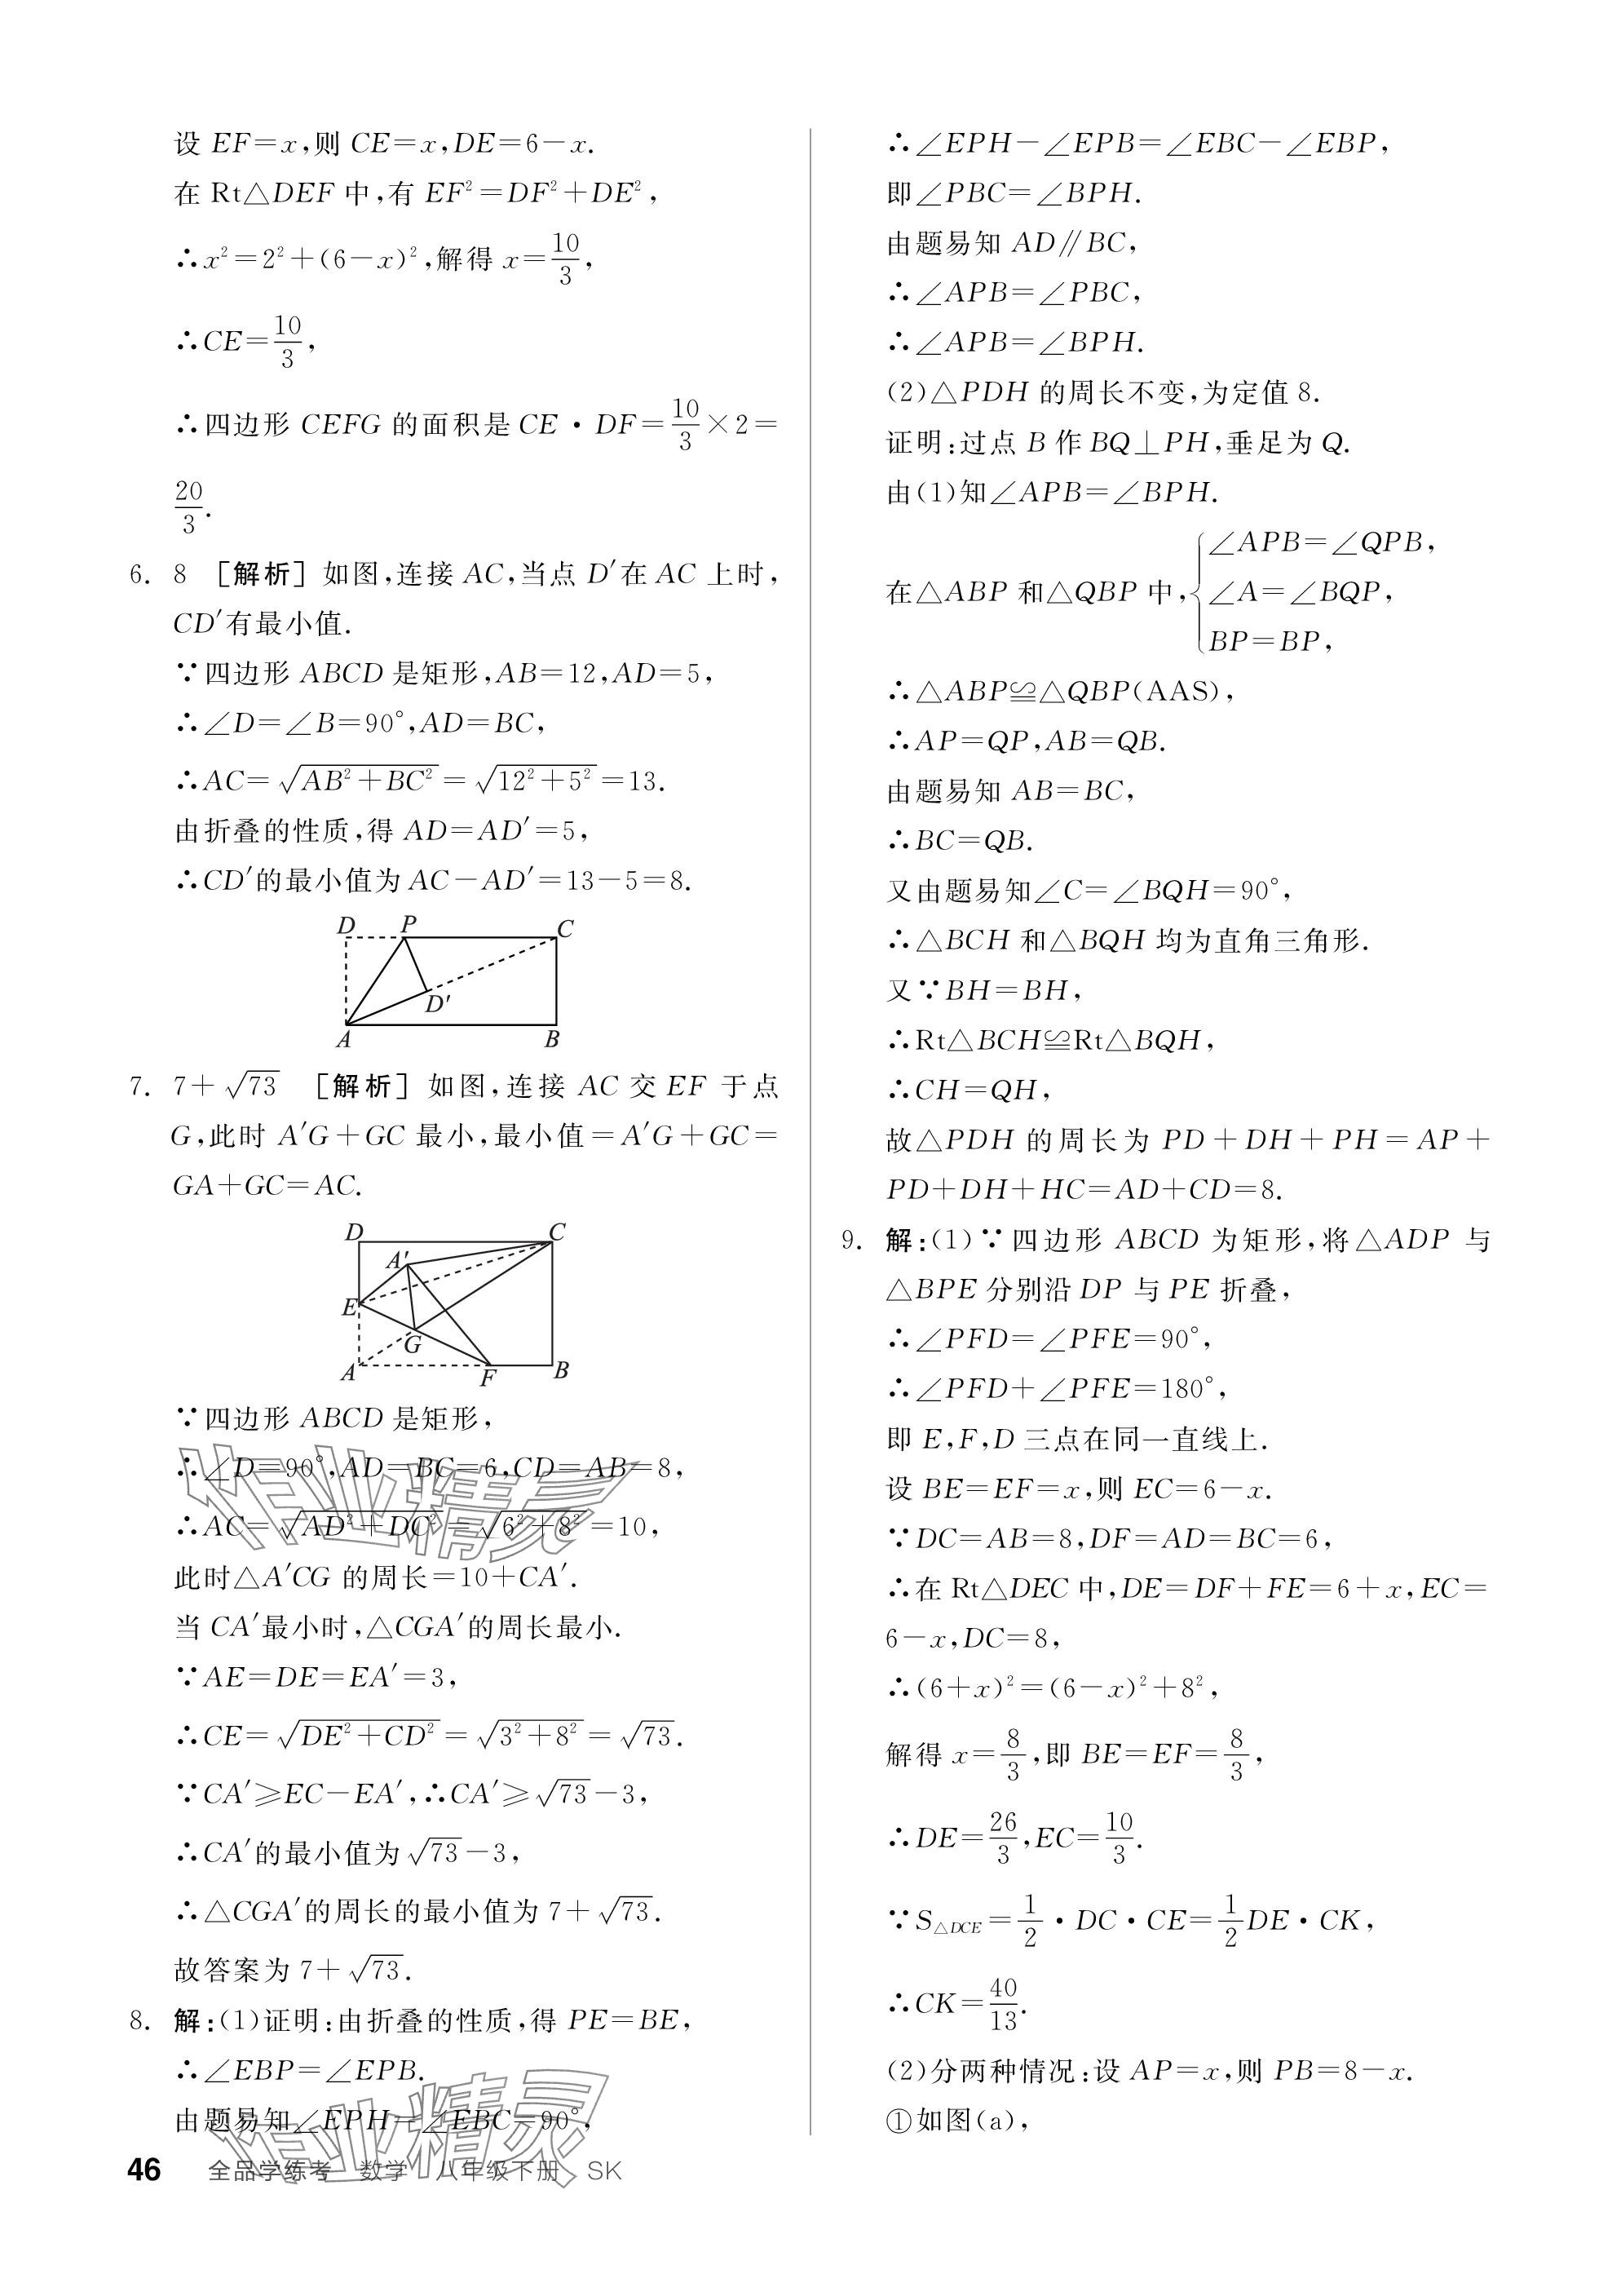 设 EF=x,则 CE=x,DE=6-x.
在 Rt△DEF 中,有 EF²=DF²+DE²,
∴x²=2²+(6-x)²,解得 x=10/3,
∴CE=10/3,
∴四边形 CEFG 的面积是 CE·DF=10/3×2=
20/3.
6. 8 [解析] 如图,连接 AC,当点 D′在 AC 上时,
CD′有最小值.
∵四边形 ABCD 是矩形,AB=12,AD=5,
∴∠D=∠B=90°,AD=BC,
∴AC=√(AB²+BC²)=√(12²+5²)=13.
由折叠的性质,得 AD=AD′=5,
∴CD′的最小值为 AC-AD′=13-5=8.
D P C
D′
A B
7. 7+√73 [解析] 如图,连接 AC 交 EF 于点
G,此时 A′G+GC 最小,最小值=A′G+GC=
GA+GC=AC.
D C
A′
E
G
A F B
∵四边形 ABCD 是矩形,
∴∠D=90°,AD=BC=6,CD=AB=8,
∴AC=√(AD²+DC²)=√(6²+8²)=10,
此时△A′CG 的周长=10+CA′.
当 CA′最小时,△CGA′的周长最小.
∵AE=DE=EA′=3,
∴CE=√(DE²+CD²)=√(3²+8²)=√73.
∵CA′⩾EC-EA′,∴CA′⩾√73-3,
∴CA′的最小值为√73-3,
∴△CGA′的周长的最小值为 7+√73.
故答案为 7+√73.
8. 解:(1)证明:由折叠的性质,得 PE=BE,
∴∠EBP=∠EPB.
由题易知∠EPH=∠EBC=90°,
∴∠EPH-∠EPB=∠EBC-∠EBP,
即∠PBC=∠BPH.
由题易知 AD∥BC,
∴∠APB=∠PBC,
∴∠APB=∠BPH.
(2)△PDH 的周长不变,为定值 8.
证明:过点 B 作 BQ⊥PH,垂足为 Q.
由(1)知∠APB=∠BPH.
在△ABP 和△QBP 中,{∠APB=∠QPB,
∠A=∠BQP,
BP=BP,
∴△ABP≌△QBP(AAS),
∴AP=QP,AB=QB.
由题易知 AB=BC,
∴BC=QB.
又由题易知∠C=∠BQH=90°,
∴△BCH 和△BQH 均为直角三角形.
又∵BH=BH,
∴Rt△BCH≌Rt△BQH,
∴CH=QH,
故△PDH 的周长为 PD+DH+PH=AP+
PD+DH+HC=AD+CD=8.
9. 解:(1)∵四边形 ABCD 为矩形,将△ADP 与
△BPE 分别沿 DP 与 PE 折叠,
∴∠PFD=∠PFE=90°,
∴∠PFD+∠PFE=180°,
即 E,F,D 三点在同一直线上.
设 BE=EF=x,则 EC=6-x.
∵DC=AB=8,DF=AD=BC=6,
∴在 Rt△DEC 中,DE=DF+FE=6+x,EC=
6-x,DC=8,
∴(6+x)²=(6-x)²+8²,
解得 x=8/3,即 BE=EF=8/3,
∴DE=26/3,EC=10/3.
∵S△DCE=1/2·DC·CE=1/2DE·CK,
∴CK=40/13.
(2)分两种情况:设 AP=x,则 PB=8-x.
①如图(a),
作业精灵
作业精灵
46 全品学练考 数学 八年级下册 SK